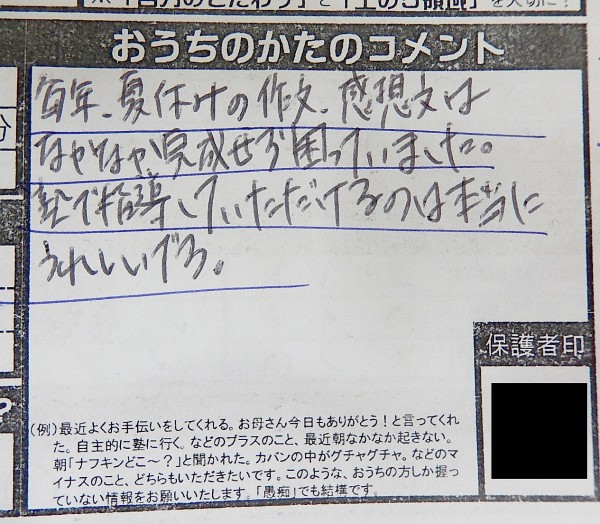 おうちのかたのコメント
毎年、夏休みの作文、感想文は
なかなか完成せず困っていました。
塾で指導していただけるのは本当に
うれしいです。
保護者印
(例)最近よくお手伝いをしてくれる。お母さん今日もありがとう!と言ってくれ
た。自主的に塾に行く。などのプラスのこと、最近朝なかなか起きない。
朝「ナフキンどこ~?」と聞かれた。カバンの中がグチャグチャ。などのマ
イナスのこと、どちらもいただきたいです。このような、おうちの方しか握っ
ていない情報をお願いいたします。「愚痴」でも結構です。